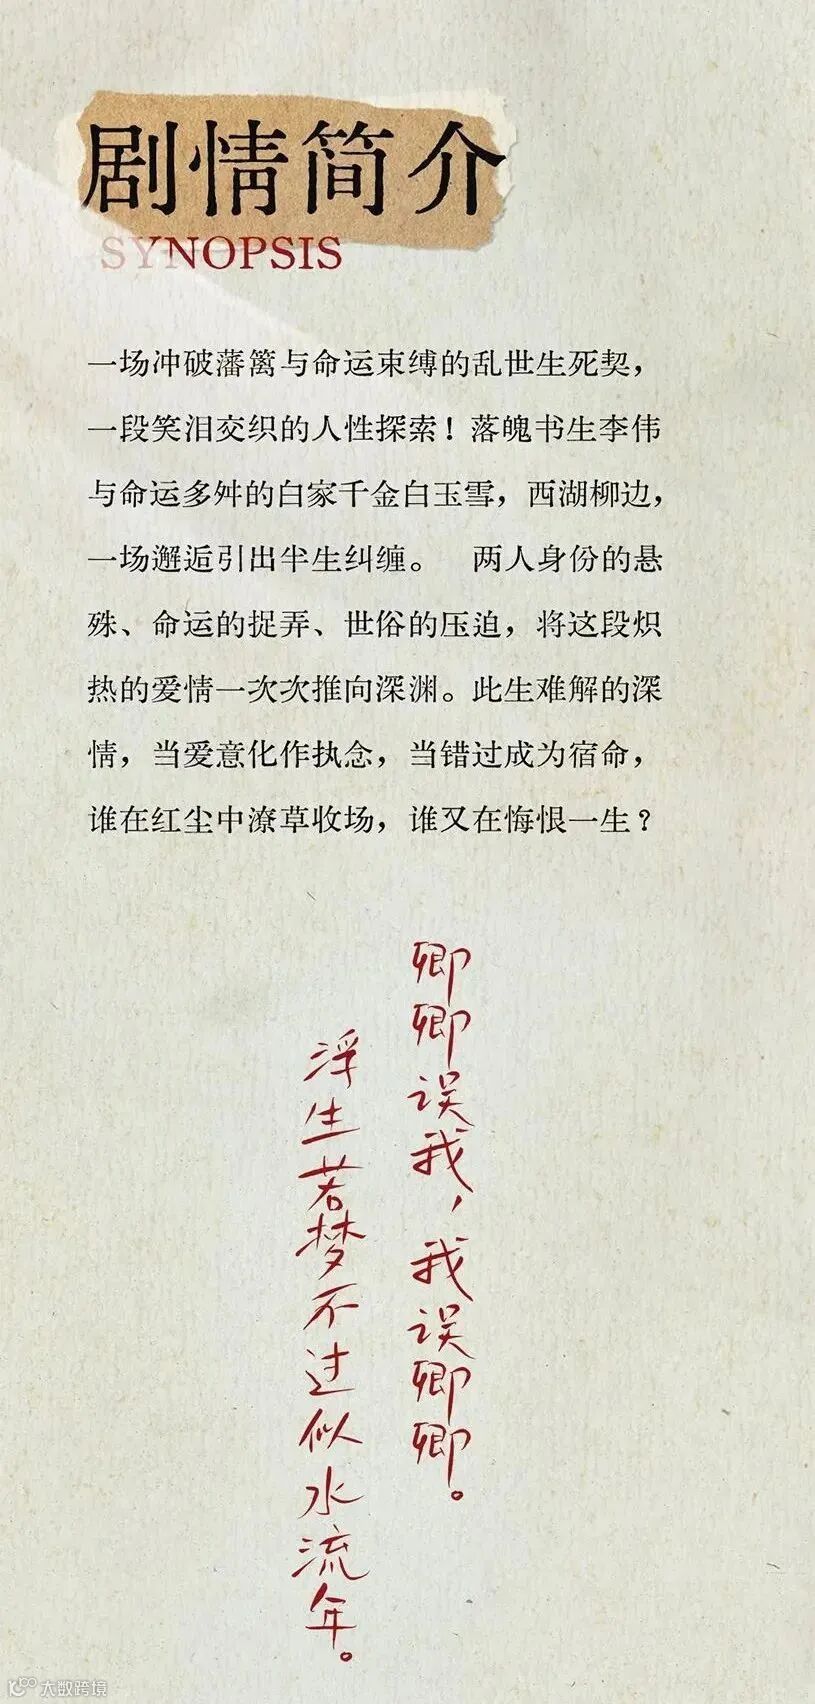 剧情简介
SYNOPSIS
一场冲破藩篱与命运束缚的乱世生死契，
一段笑泪交织的人性探索！落魄书生李伟
与命运多舛的白家千金白玉雪，西湖柳边，
一场邂逅引出半生纠缠。 两人身份的悬
殊、命运的捉弄、世俗的压迫，将这段炽
热的爱情一次次推向深渊。此生难解的深
情，当爱意化作执念，当错过成为宿命，
谁在红尘中潦草收场，谁又在悔恨一生？
卿卿误我，我误卿卿。
浮生若梦不过似水流年。
大数跨境